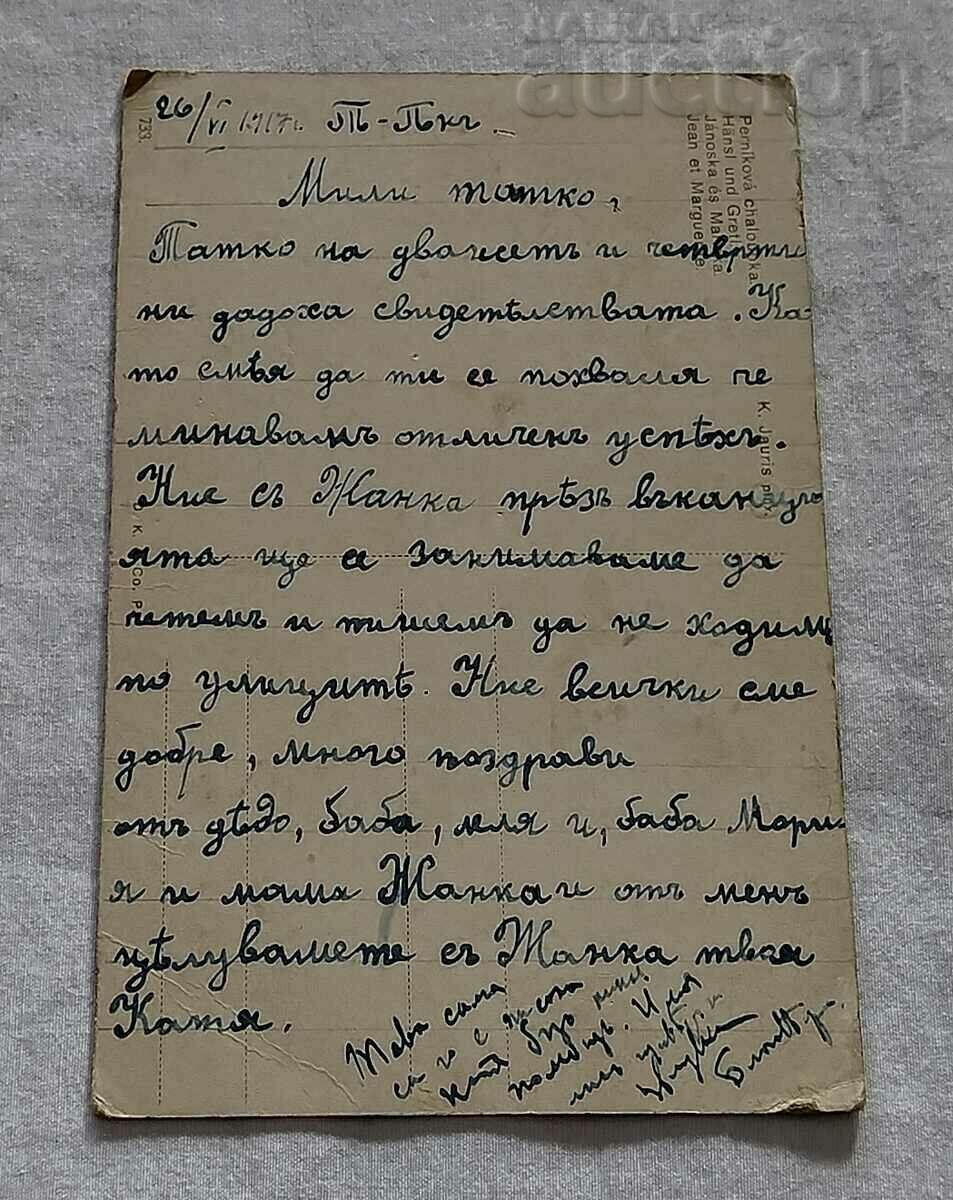 26/VI 1917г. Т-Пкъ.
Мили татко,
Татко на двансетъ и четвърти
ни дадоха свидетѣлствата. Ка-
то смѣя да ти се похваля че
минавамъ отличенъ успѣхъ.
Ние съ Жанка прѣзъ въканцъ
ята ще се занимаваме да
четемъ и пишемъ да не ходимъ
по улицитѣ. Ние всички сме
добре, много поздрави
отъ дѣдо, баба, леля и, баба Мари-
я и мама Жанка и отъ менъ
цѣлувамете съ Жанка твоя
Катя.
Това сама
си го е писала
Катя безъ
помощь. И ний
733.
Perníková chaloupka.
Hänsl und Gretl
Jánoska és
Jean et Marguerite.
K. Jauris pinx.
K. Co. P.
auction